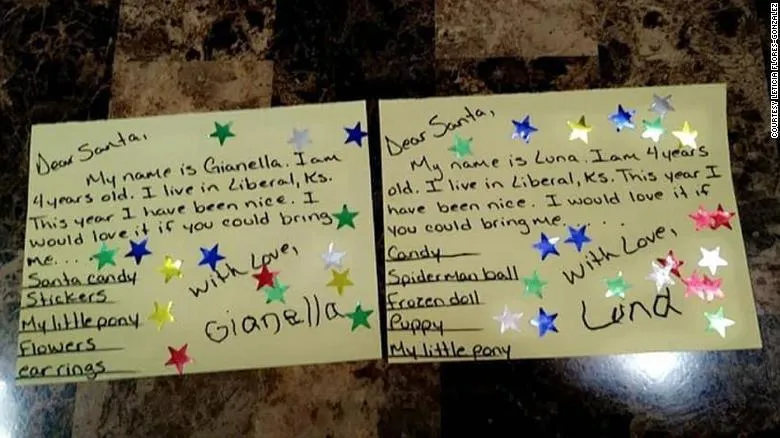 Dear Santa,
My name is Gianella. I am
4 years old. I live in Liberal, Ks.
This year I have been nice. I
would love it if you could bring
me. . .
Santa candy
Stickers
My little pony
Flowers
ear rings
With Love,
Gianella
Dear Santa,
My name is Luna. I am 4 years
old. I live in Liberal, Ks. This year I
have been nice. I would love it if
you could bring me. . . . . .
Candy
Spiderman ball
Frozen doll
Puppy
My little pony
With Love,
Luna
COURTESY LETICIA FLORES-GONZALEZ